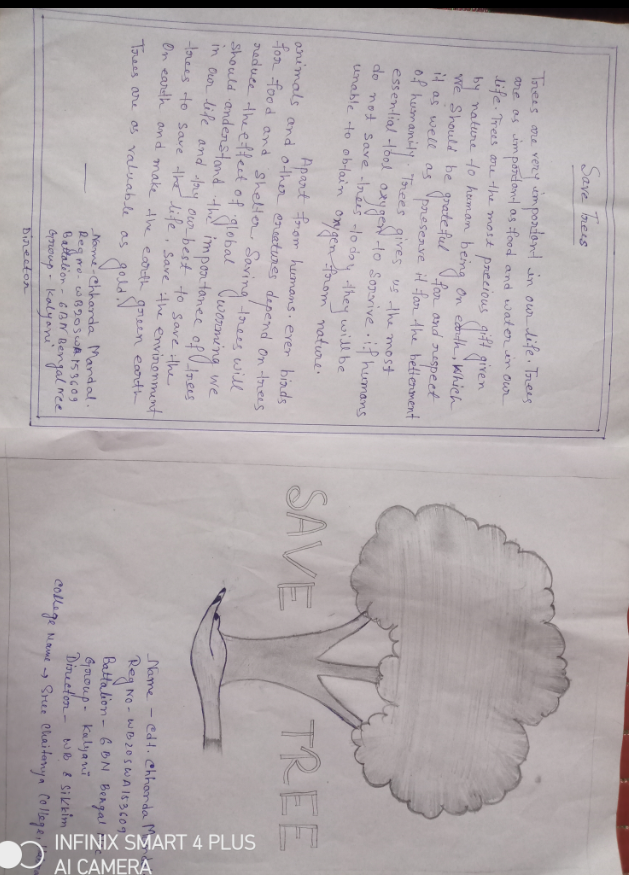 Save Trees
Trees are very important in our life. Trees
are as important as food and water in our
life. Trees are the most precious gift given
by nature to human being on earth. Which
we should be grateful for and respect
it as well as preserve it for the betterment
of humanity. Trees gives us the most
essential tool oxygen to sorvive. if humans
do not save trees today they will be
unable to obtain oxygen from nature.
Apart from humans. ever birds
animals and other creatures depend on trees
for food and shelter. Saving trees will
reduce the effect of global worming we
should anderstand the importance of trees
in our life and try our best to save the
trees to save the life, save the environment
On earth and make the earth green earth
Trees are as valuable as gold.
Name - Chharda Mandal.
Reg no - WB20SWA153609
Battalion - 6 BN Bengal Ncc
Group. Kalyani
Director
SAVE TREE
Name - Cdt. Chharda
Reg No - WB20SWA153609
Battalion - 6 BN Bengal
Group - Kalyani
Director - WB & Sikkim
College Name → Sree Chaitanya College,
INFINIX SMART 4 PLUS
AI CAMERA